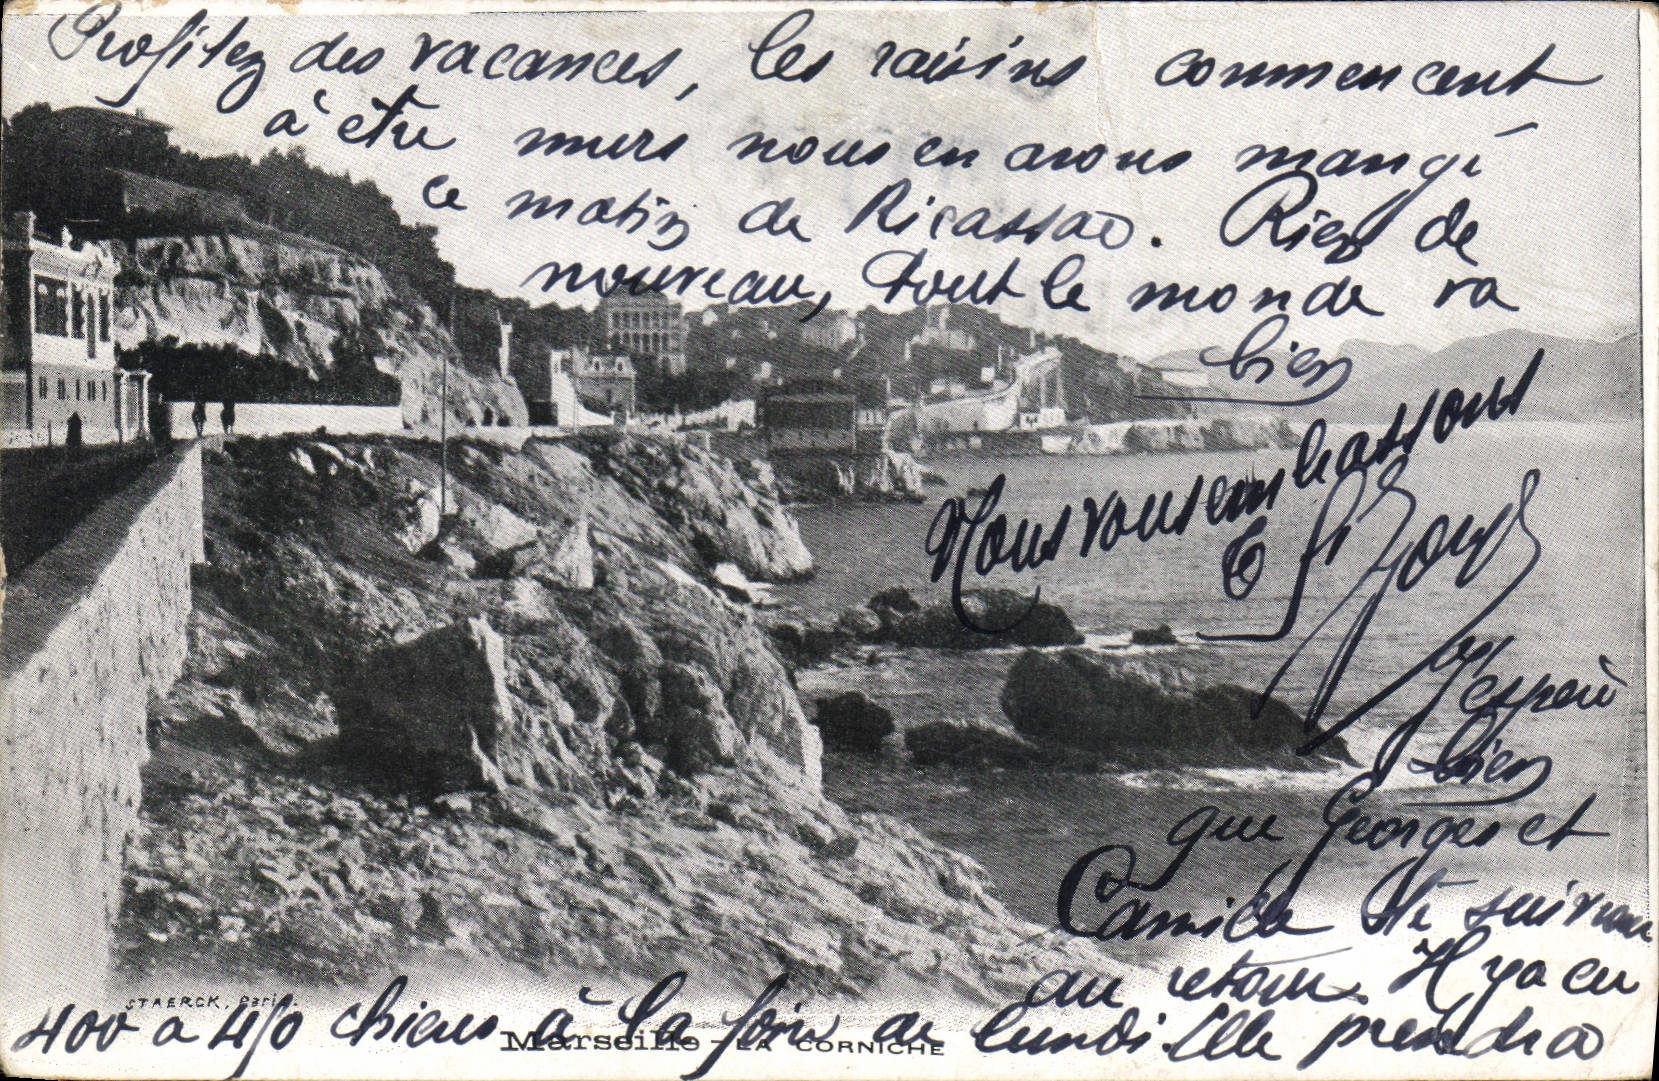 Profitez des vacances, les raisins commencent
à être murs nous en avons mangé
ce matin de Ricassao. Rien de
nouveau, tout le monde va
bien
Nous vous embrassons
J'espère
bien
que Georges et
Camille te suivront
au retour. Il y a eu
400 a 450 chiens à la foire de lundi. Elle prendra
STAERCK, Paris.
Marseille - LA CORNICHE